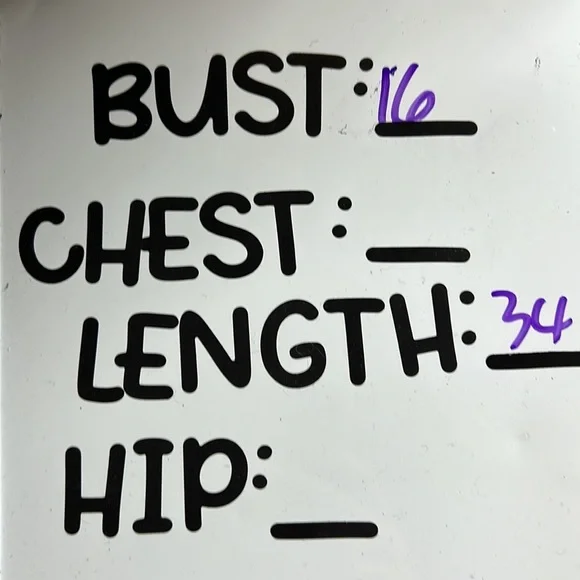 BUST: 16
CHEST: __
LENGTH: 34
HIP: __